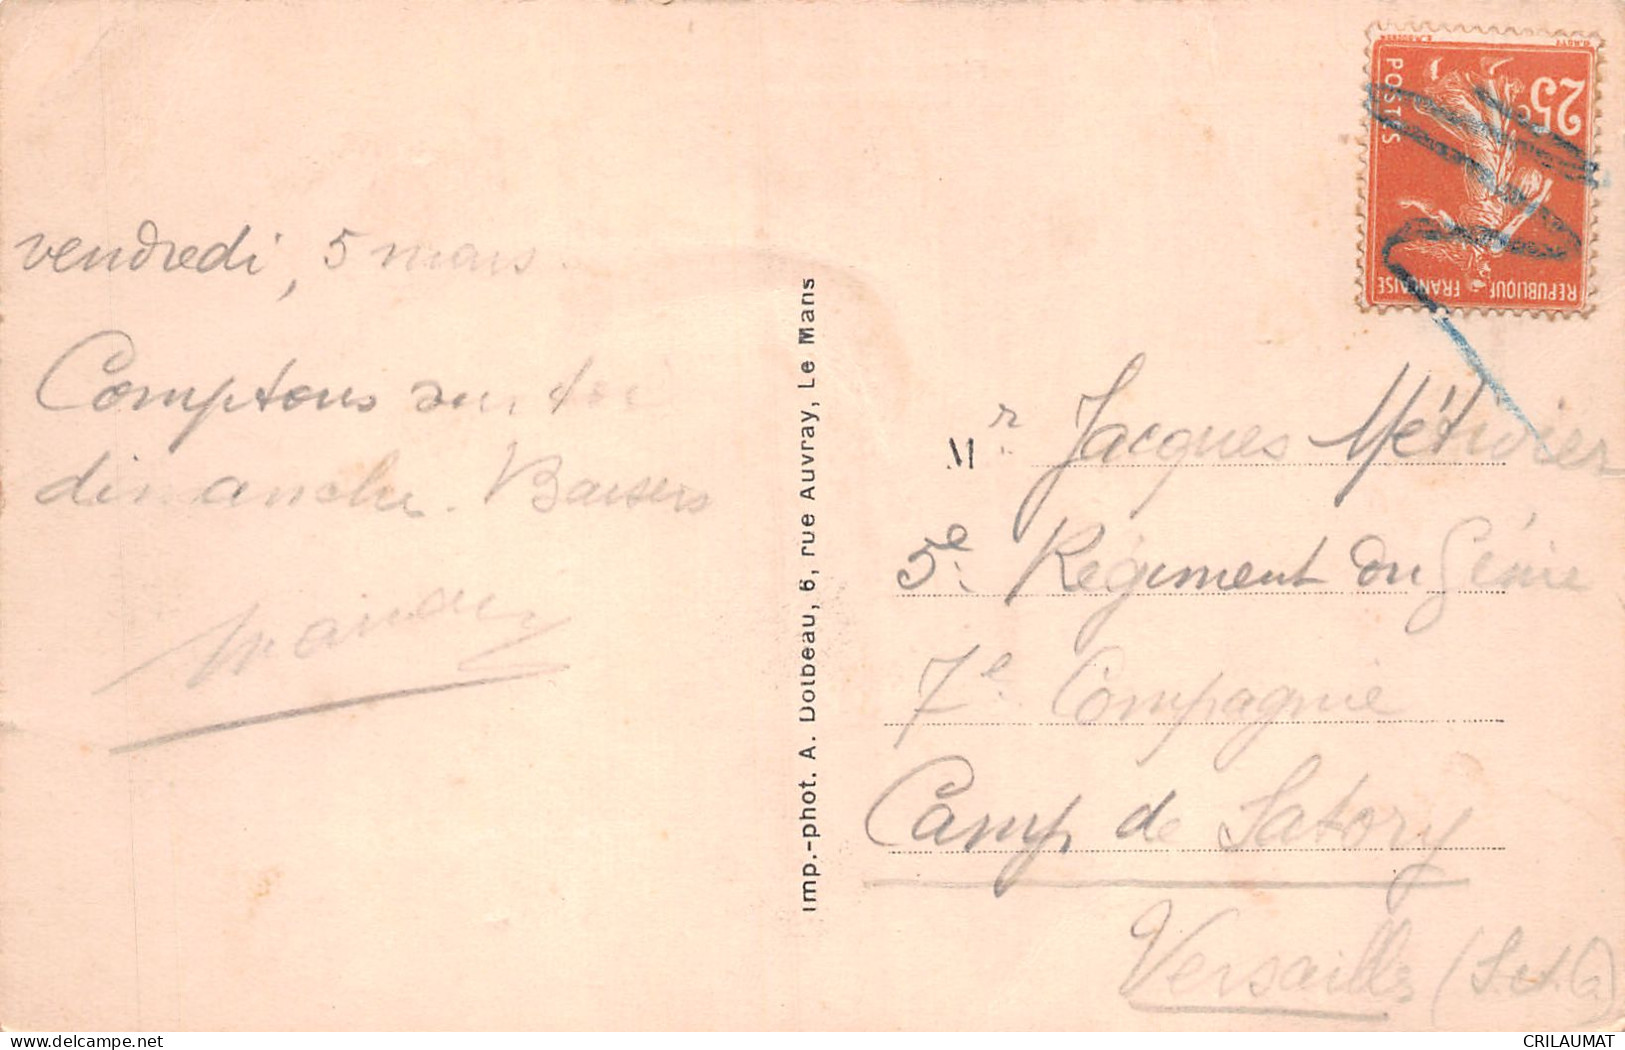 vendredi, 5 mars.
Comptons sur toi
dimanche. Baisers
Imp.-phot. A. Dolbeau, 6, rue Auvray, Le Mans
25c
POSTES
REPUBLIQUE FRANÇAISE
Mr Jacques Métivier
5e Régiment du Génie
7e Compagnie
Camp de Satory
Versailles (S. et O.)
CRILAUMAT